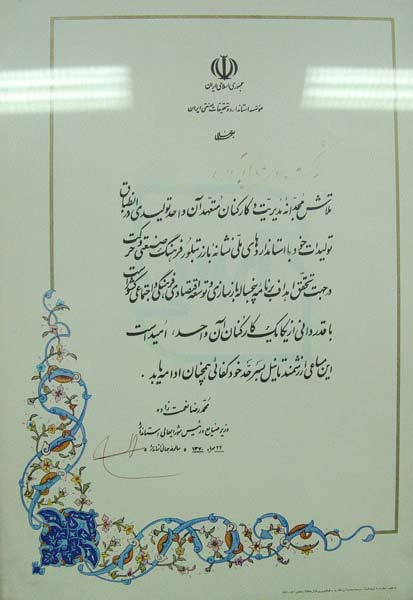 جمهوری اسلامی ایران
مؤسسه استاندارد و تحقیقات صنعتی ایران
بسمه تعالی
تلاش مجدانه مدیریت و کارکنان متعهد آن واحد تولیدی در انطباق
تولیدات خود با استانداردهای ملی نشانه بارز تبلور فرهنگ صنعتی و حرکت
در جهت تحقق اهداف برنامه پنجساله بازسازی و توسعه اقتصادی فرهنگی و اجتماعی کشور است
با قدردانی از یکایک کارکنان آن واحد، امید است
این مساعی ارزشمند تا نیل بسر حد خودکفائی همچنان ادامه یابد.
محمدرضا نعمت زاده
وزیر صنایع و رئیس شورایعالی استاندارد
۲۲ مهر ۱۳۷۰